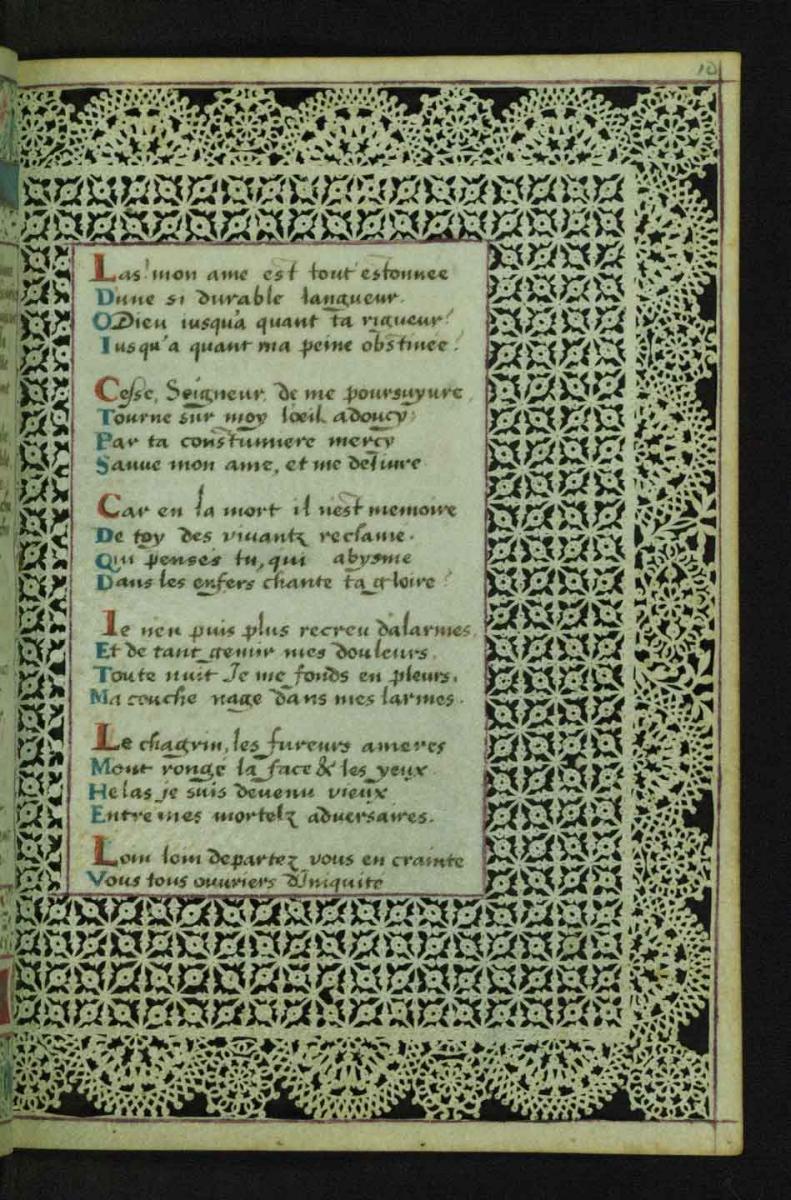 10
Las! mon ame est tout estonnee
Dune si durable langueur.
O Dieu iusqua quant ta rigueur!
Iusqu'a quant ma peine obstinee!
Cesse, Seigneur, de me poursuyure,
Tourne sur moy lœil adoucy:
Par ta constumiere mercy
Sauue mon ame, et me deliure
Car en la mort il nest memoire
De toy des viuantz reclame.
Qui penses tu, qui abysme
Dans les enfers chante ta gloire?
Ie nen puis plus recreu dalarmes,
Et de tant gemir mes douleurs.
Toute nuit Je me fonds en pleurs.
Ma couche nage dans mes larmes.
Le chagrin, les fureurs ameres
Mont rongé la face & les yeux
Helas je suis deuenu vieux
Entre mes mortelz aduersaires.
Loin loin departez vous en crainte
Vous tous ouuriers dIniquite